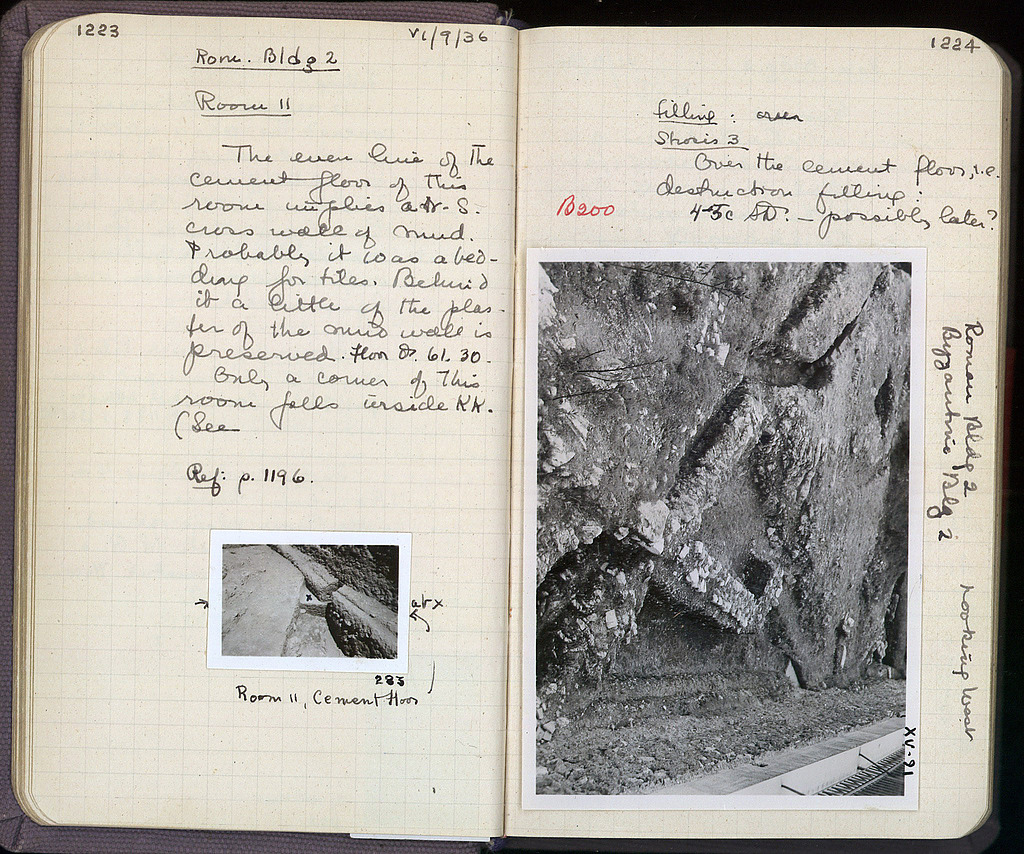 1223
VI/9/36
Rom. Bldg 2
Room 11
The even line of the
cement floor of this
room implies a N-S.
cross wall of mud.
Probably it was a bed-
ding for tiles. Behind
it a little of the plas-
ter of the mud wall is
preserved. Floor at 61.30.
Only a corner of this
room falls inside KK.
(See
Ref: p. 1196.
at x
x
283
Room 11, Cement floor
1224
filling: area
Strosis 3
Over the cement floor, i.e.
destruction filling.
B200
4-5c AD. — possibly later?
Roman Bldg 2
Byzantine Bldg 2
Looking West
XV-91